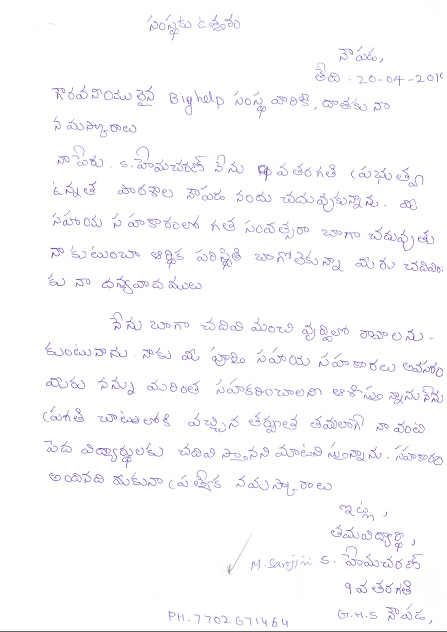 సంస్థకు ఉత్తరం
నౌపడ,
తేది - 20-04-201
గౌరవనీయులైన Bighelp సంస్థ వారికి, దాతకు నా
నమస్కారాలు
నాపేరు. S. హేమచరణ్ నేను 9వ తరగతి ప్రభుత్వ
ఉన్నత పాఠశాల నౌపడ నందు చదువుకున్నాను. మీ
సహాయ సహకారంలో గత సంవత్సరా బాగా చదువుతు
నా కుటుంబా ఆర్థిక పరిస్థితి బాగోలేకున్నా మీరు చదివిం
కు నా ధన్యవాదములు
నేను బాగా చదివి మంచి వృద్ధిలో రావాలను-
కుంటునాను. నాకు మీ పూర్తి సహాయ సహకారలు అవసరం
మీరు నన్ను మరింత సహకరించాలని ఆశిస్తున్నాను నేను
ప్రగతి చోటులోకి వచ్చిన తర్వాత తమలాగే నా వంటి
పేద విద్యార్థులకు చదివిస్తానని మాటిస్తున్నాను. సహకారం
అయినది మీకునా ప్రత్యేక నమస్కారాలు
ఇట్లు,
తమవిద్యార్థి,
M. Sarojini S. హేమచరణ్
9వ తరగతి
G.H.S నౌపడ,
PH. 7702671464